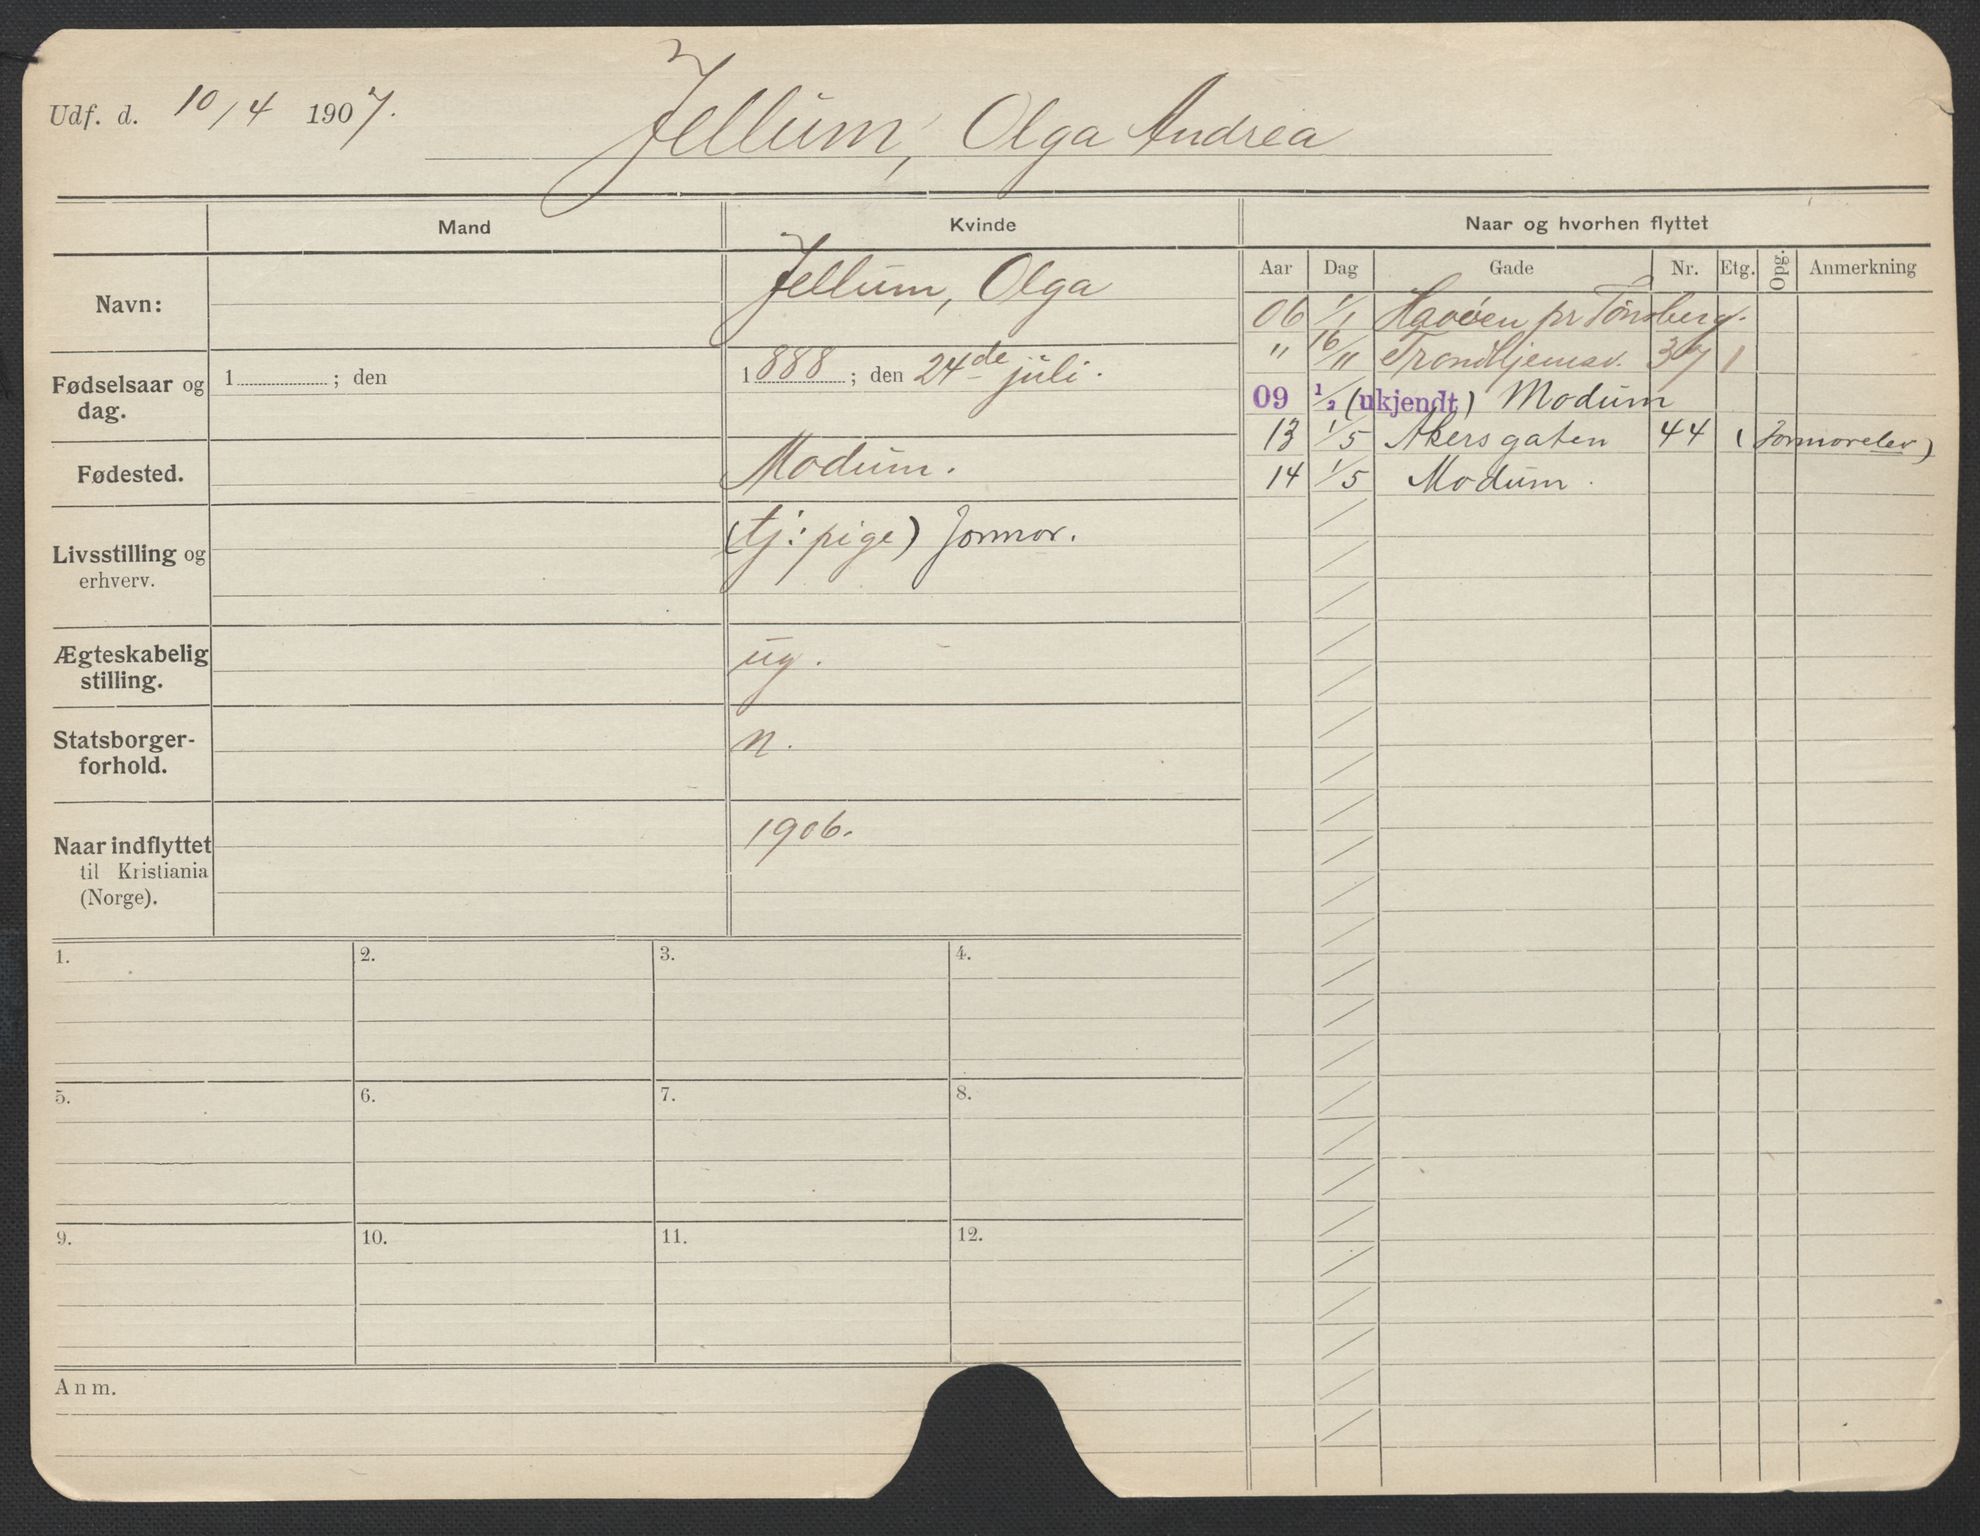 Udf. d. 10/4 1907.
Jellum, Olga Andrea
Mand Kvinde Naar og hvorhen flyttet
Aar Dag Gade Nr. Etg. Opg. Anmerkning
Navn: Jellum, Olga
Fødselsaar og dag. 1 ; den 1888 ; den 24de juli.
Fødested. Modum.
Livsstilling og erhverv. (tj: pige) Jormor.
Ægteskabelig stilling. ug.
Statsborger-forhold. n.
Naar indflyttet til Kristiania (Norge). 1906.
06 1/1 Havøen pr Tønsberg.
" 16/11 Trondhjemsv. 37 1
09 1/2 (ukjendt) Modum
13 1/5 Akersgaten 44 (Jormorelev)
14 1/5 Modum.
1. 2. 3. 4.
5. 6. 7. 8.
9. 10. 11. 12.
Anm.